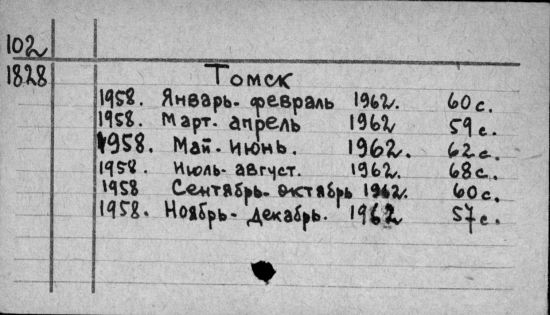 102
1828
Томск
1958. Январь-февраль 1962. 60 с.
1958. Март. апрель 1962 59 с.
1958. Май-июнь. 1962. 62 с.
1958. июль-август. 1962. 68 с.
1958 Сентябрь-октябрь 1962. 60 с.
1958. Ноябрь-декабрь. 1962 57 с.